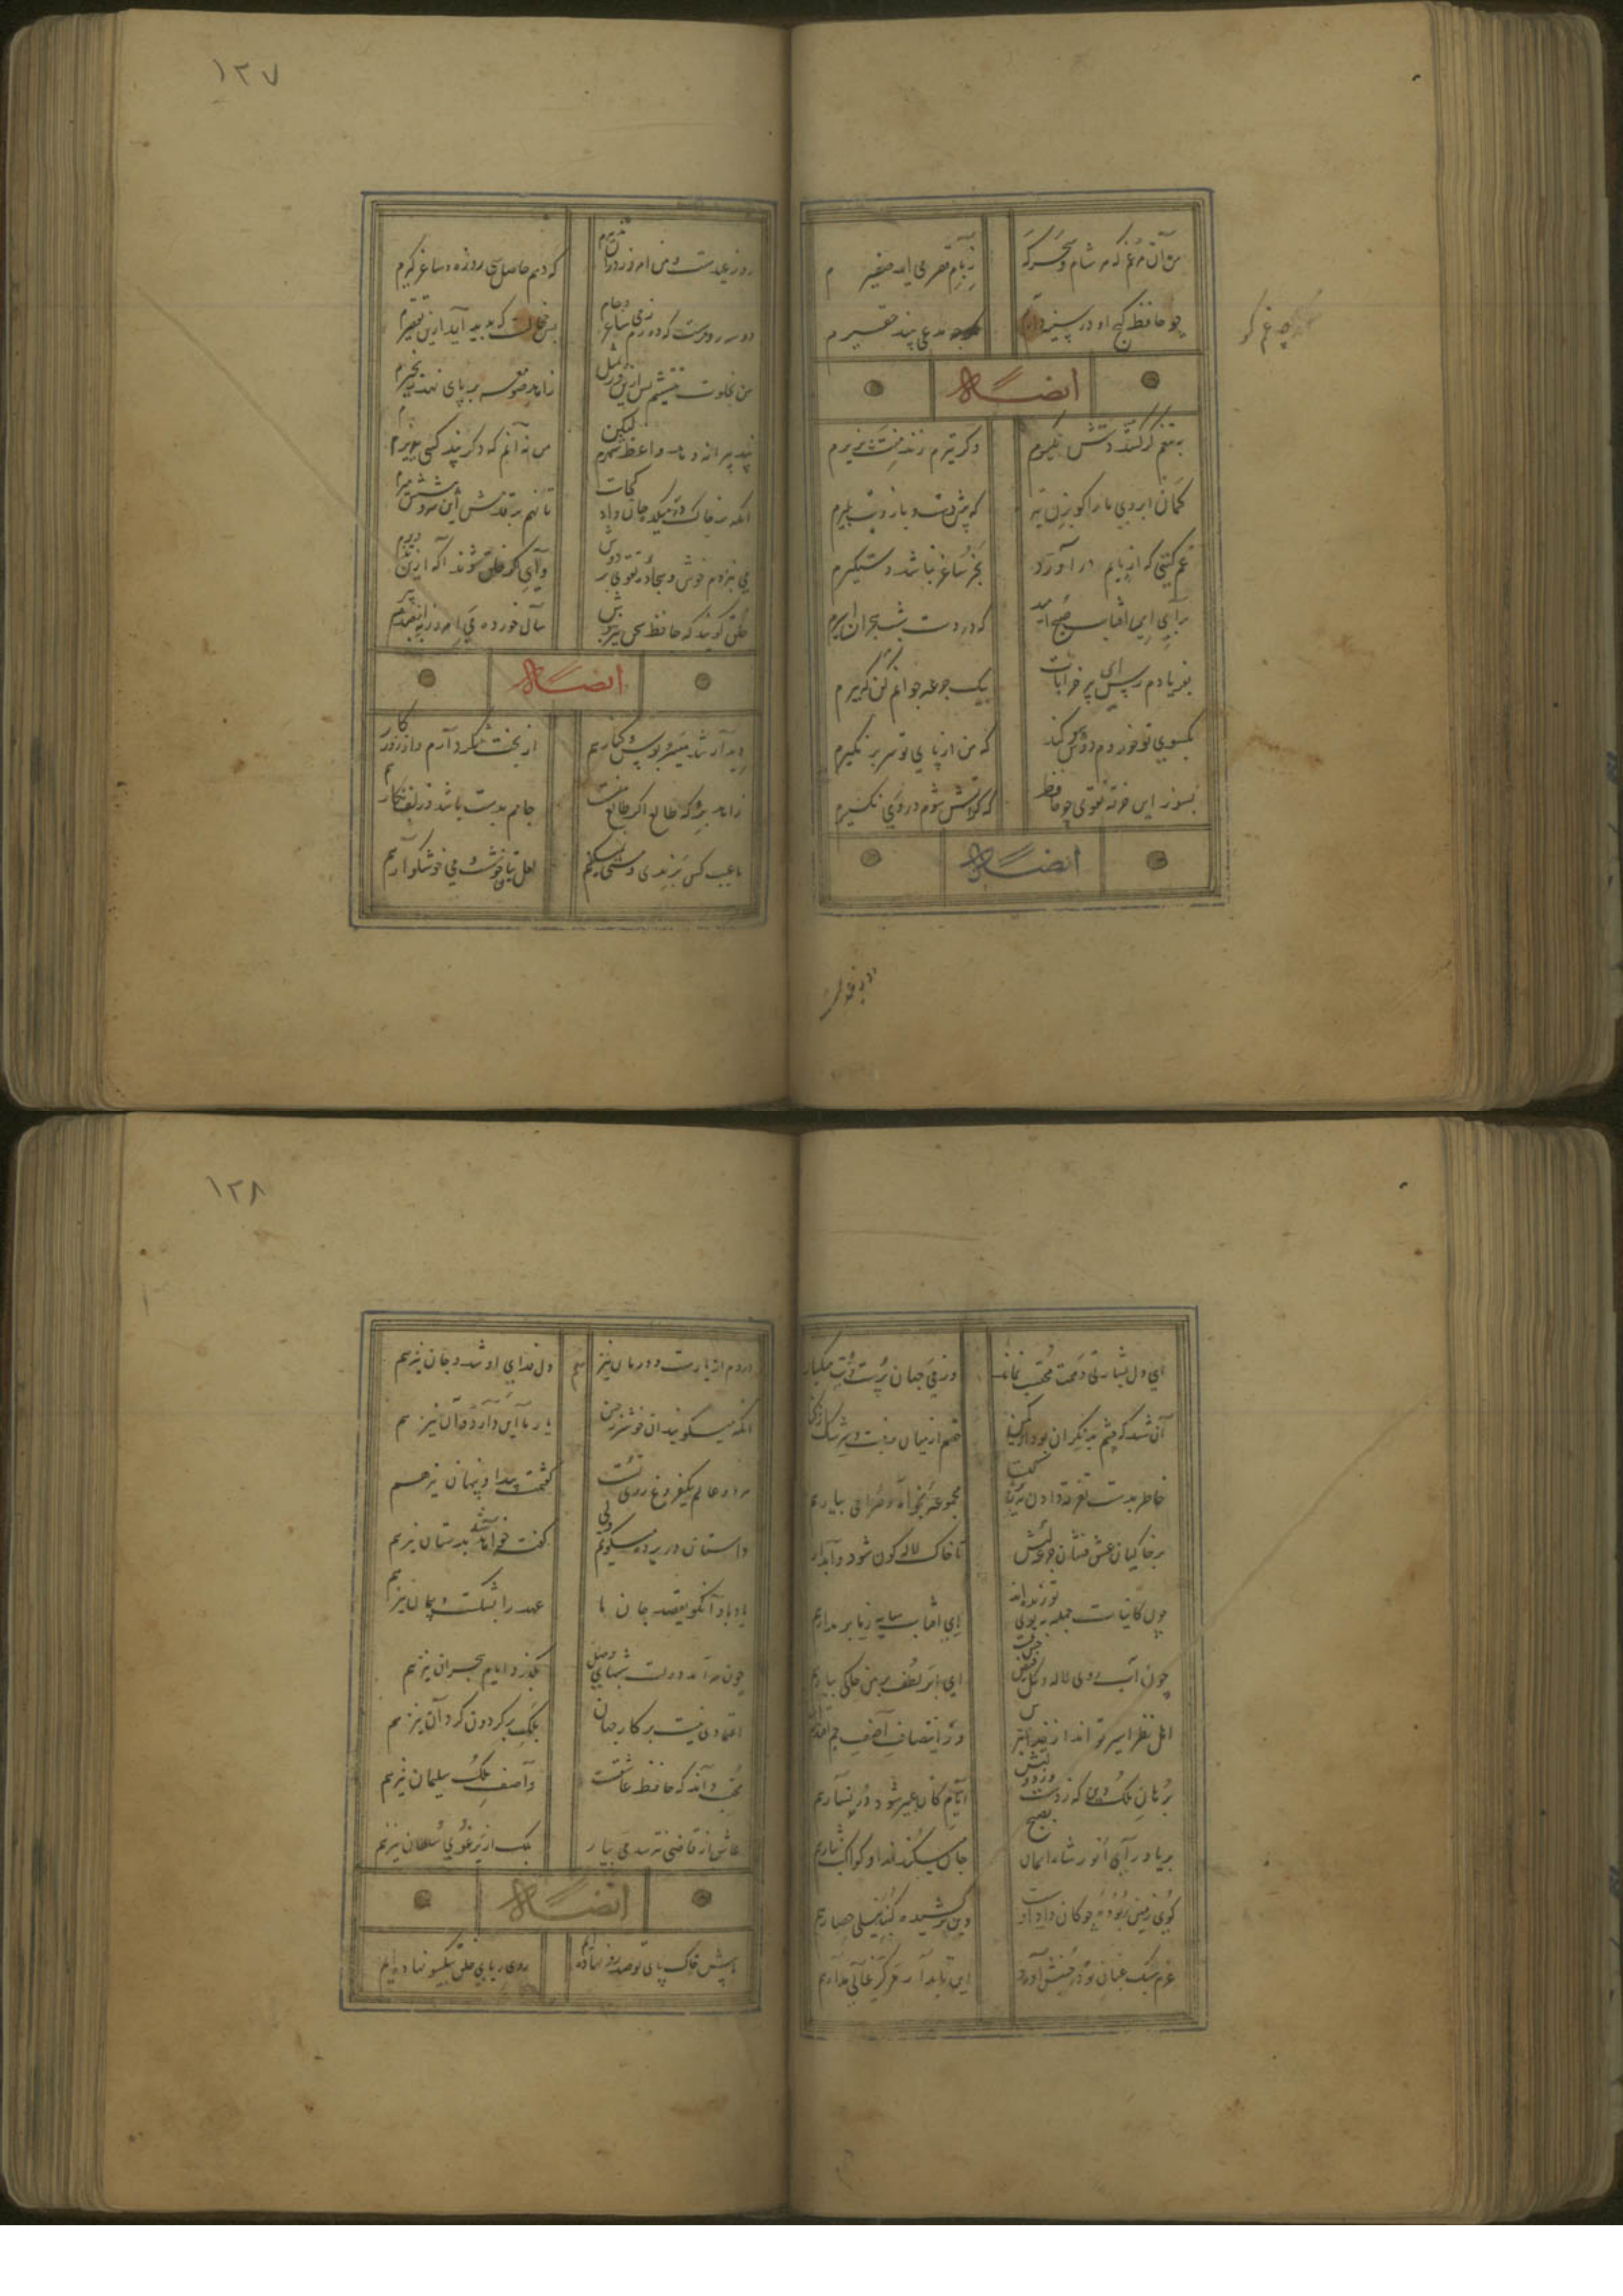 ۱۲۷
من آن مرغم که هر شام و سحرگه ز بام قصر می آید صفیرم
چو حافظ گنج او در سینه دارم مدعی بیند حقیرم
ایضا له
به تیغم گر کشد دستش نگیرم وگر تیرم زند منت پذیرم
کمان ابروی ما را گو بزن تیر که پیش دست و بازویت بمیرم
غم گیتی که از پایم درآورد بجز ساغر نباشد دستگیرم
برآی ای آفتاب صبح امید که در دست شب هجران اسیرم
بفریادم رس ای پیر خرابات بیک جرعه جوانم کن که پیرم
بگیسوی تو خوردم دوش سوگند که من از پای تو سر بر نگیرم
بسوز این خرقه تقوی چو حافظ که گر آتش شوم در وی نگیرم
ایضا له
روز عیدست و من امروز در آن تدبیرم که دهم حاصل سی روزه و ساغر گیرم
دو سه روزست که دورم ز می و ساغر و جام بس خجالت که پدید آید ازین تقصیرم
من بخلوت ننشینم پس ازین ور بمثل زاهد صومعه بر پای نهد زنجیرم
پند پیرانه دهد واعظ شهرم لیکن من نه آنم که دگر پند کسی بپذیرم
آنکه بر خاک در میکده جان داد کجاست تا نهم بر قدمش این سر و پیشش میرم
می بزیر خوش و سجاده تقوی بر دوش وای اگر خلق شوند آگه ازین تزویرم
خلق گویند که حافظ سخن پیر نیوش سال خورده می امروز به از صد پیرم
ایضا له
دیدار شد میسر و بوس و کنار هم از بخت شکر دارم و از روزگار هم
زاهد برو که طالع اگر طالع منست جامم بدست باشد و زلف نگار هم
ما عیب کس برندی و مستی نمیکنیم لعل بتان خوشست و می خوشگوار هم
۱۲۸
ای دل بشارتی دهمت محتسب نماند وز می جهان پرست و بت میگسار
آن شد که چشم بد نگران بودی از کمین خصم از میان برفت و سرشک از کنار
خاطر بدست تفرقه دادن نه زیرکیست مجموعه بخواه و صراحی بیار هم
بر خاکیان عشق فشان جرعه لبش تا خاک لاله گون شود و آبدار
چون کاینات جمله ببوی تو زنده اند ای آفتاب سایه ز ما برمدار هم
چون آب روی لاله و گل فیض حسن تست ای ابر لطف بر من خاکی ببار هم
اهل نظر اسیر تو اند از خدا بترس وز انتصاف آصف جم اقتدار
برهان ملک و دین که ز دست وزارتش ایام کان یمین شد و دریا یسار هم
بر یاد رای انور او آسمان بصبح جان میکند فدا و کواکب نثار هم
گوی زمین ربوده چوگان عدل اوست وین برکشیده گنبد نیلی حصار هم
عزم سبک عنان تو در جنبش آورد این پایدار مرکز عالی مدار هم
دردم از یارست و درمان نیز هم دل فدای او شد و جان نیز هم
آنکه میگویند آن خوشتر ز حسن یار ما این دارد و آن نیز هم
هر دو عالم یک فروغ روی تست گفتمت پیدا و پنهان نیز هم
داستان در پرده میگویم ولی گفته خواهد شد بدستان نیز هم
یاد باد آنکو بقصد جان ما عهد را بشکست و پیمان نیز هم
چون سرآمد دولت شبهای وصل بگذرد ایام هجران نیز هم
اعتمادی نیست بر کار جهان بلکه بر گردون گردان نیز هم
محتسب داند که حافظ عاشقست و آصف ملک سلیمان نیز هم
عاشق از قاضی نترسد می بیار بلک از یرغوی سلطان نیز هم
ایضا له
ما پیش خاک پای تو صد رو نهاده ایم روی ریای خلق بیکسو نهاده ایم